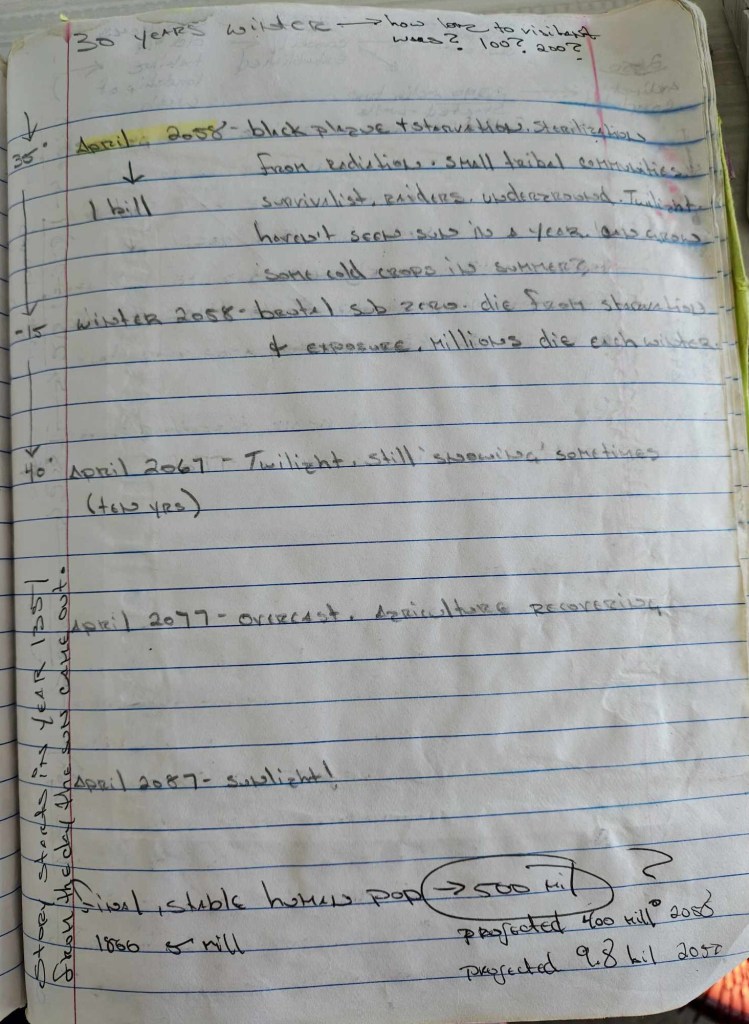 30 YEARS WINTER → how long to visit
wars? 100? 200?
April 2058 - black plague + starvation. Sterilization
35°
from radiation. small tribal communities.
↓
1 bill
survivalist, raiders, underground. Twilight.
haven't seen sun in a year. can grow
some cold crops in summer?
-15
winter 2058 - brutal sub zero. die from starvation
& exposure. Millions die each winter
40°
April 2067 - Twilight, still 'snowing' sometimes
(ten yrs)
April 2077 - overcast. Agriculture recovering
April 2087 - sunlight!
Final, stable human pop → 500 mil ?
1800 5 mill
projected 400 mill 2058
projected 9.8 bil 2050
Story starts in YEAR 1351
from the day the sun came out.